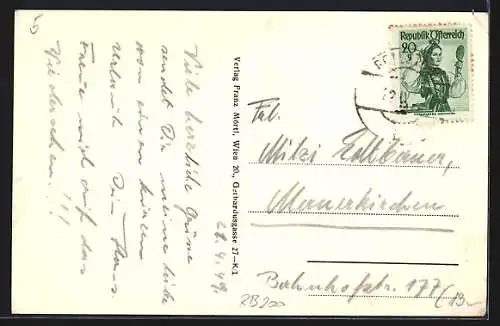 Viele herzliche Grüße
sendet Dir meine liebe
von einem kurzen
Urlaub Dein Hans.
Freue mich auf das
Wiedersehen..!!!
27.4.49.
Verlag Franz Mörtl, Wien 20., Gerhardusgasse 27—K:1
Republik Österreich
20
Frl.
Mitzi
Mauerkirchen
Bahnhofstr. 177